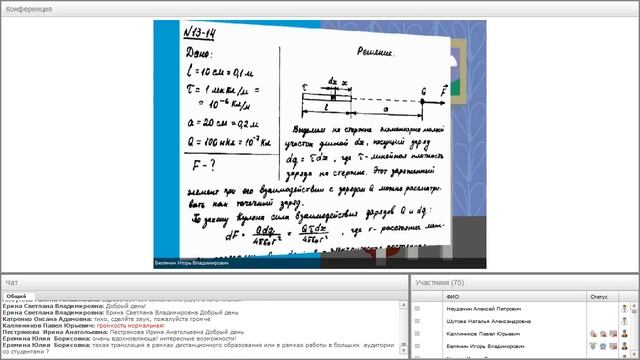 Конференция
N13-14
Дано:
l = 10 см = 0,1 м
τ = 1 мкКл/м =
= 10⁻⁶ Кл/м
a = 20 см = 0,2 м
Q = 100 нКл = 10⁻⁷ Кл
F - ?
Решение.
dx x
τ Q F
l a
Выделим на стержне элементарно малый
участок длиной dx, несущий заряд
dq = τdx, где τ - линейная плотность
заряда на стержне. Этот заряженный
элемент при его взаимодействии с зарядом Q можно рассматри-
вать как точечный заряд.
По закону Кулона сила взаимодействия зарядов Q и dq:
dF = Qdq/4πε₀r² = Qτdx/4πε₀r², где r - расстояние меж-
Белянин Игорь Владимирович
Чат
Общий
Ерина Светлана Владимировна: Добрый день!
Ерина Светлана Владимировна: Ерина Светлана Владимировна Добрый день
Катренко Оксана Адамовна: тихо, сделайте звук, пожалуйста громче
Каллиников Павел Юрьевич: громкость нормальная!
Пестрякова Ирина Анатольевна: Пестрякова Ирина Анатольевна Добрый день
Еремина Юлия Борисовна: очень вдохновляюще! интересные возможности!
Еремина Юлия Борисовна: такая трансляция в рамках дистанционного образования или в рамках работы в больших аудитории
со студентами ?
Участники (75)
ФИО Статус
Неудачин Алексей Петрович
Шутова Наталья Александровна
Каллиников Павел Юрьевич
Еремина Юлия Борисовна